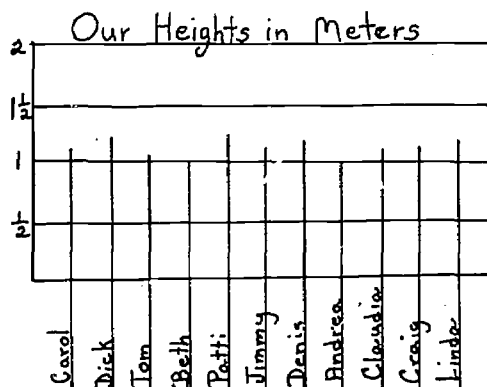 Our Heights in Meters
2
1½
1
½
Carol
Dick
Tom
Beth
Patti
Jimmy
Denis
Andrea
Claudia
Craig
Linda